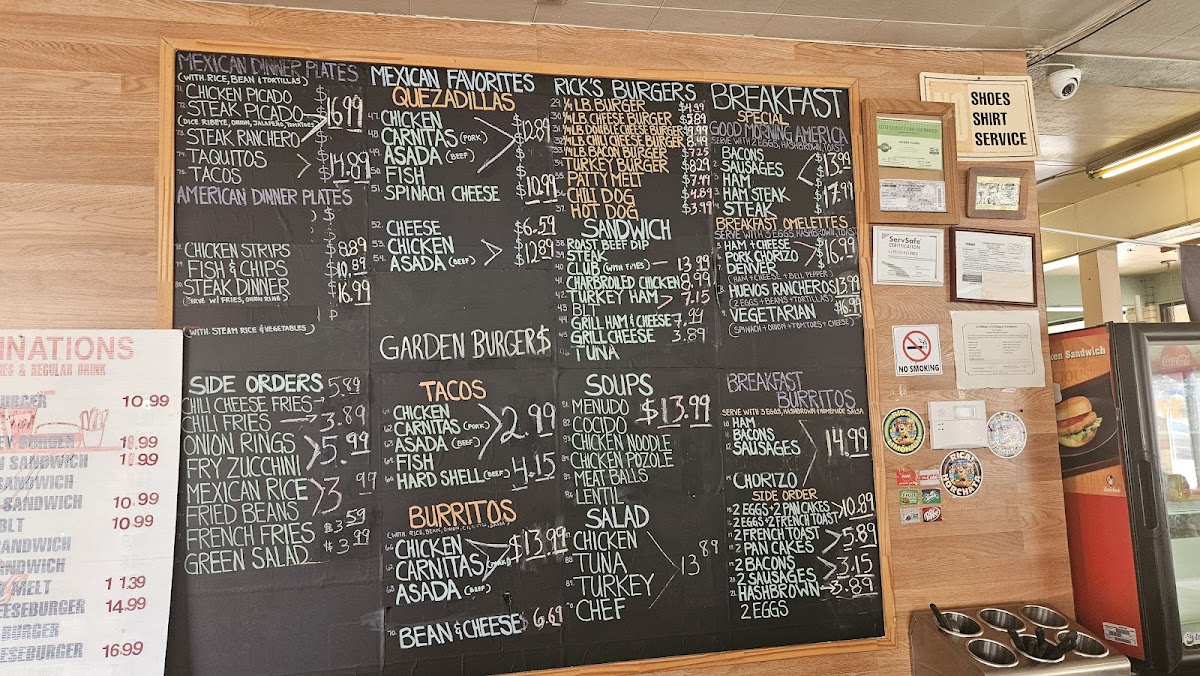 MEXICAN DINNER PLATES
(WITH RICE, BEAN & TORTILLAS)
71. CHICKEN PICADO
72. STEAK PICADO $16.99
(DICE RIBEYE, ONION, JALAPEÑO, TOMATOES)
73. STEAK RANCHERO
74. TAQUITOS
75. TACOS $14.89
AMERICAN DINNER PLATES
CHICKEN STRIPS 8.89
FISH & CHIPS 10.89
STEAK DINNER 16.99
(SERVE W/ FRIES, ONION RING)
(WITH STEAM RICE & VEGETABLES)
SIDE ORDERS
CHILI CHEESE FRIES 5.89
CHILI FRIES 3.89
ONION RINGS
FRY ZUCCHINI 5.99
MEXICAN RICE
FRIED BEANS
FRENCH FRIES $3.59
GREEN SALAD $3.99
MEXICAN FAVORITES
QUEZADILLAS
47. CHICKEN
48. CARNITAS (PORK) 12.89
49. ASADA (BEEF)
50. FISH
51. SPINACH CHEESE 10.99
52. CHEESE $6.59
53. CHICKEN
54. ASADA (BEEF) 12.89
GARDEN BURGER $
TACOS
CHICKEN
CARNITAS (PORK) 2.99
ASADA (BEEF)
FISH
HARD SHELL (BEEF) 4.15
BURRITOS
CHICKEN $13.99
CARNITAS
ASADA (BEEF)
70. BEAN & CHEESE 6.69
RICK'S BURGERS
29. ¼ LB BURGER $4.99
30. ¼ LB CHEESE BURGER $5.89
¼ LB DOUBLE CHEESE BURGER
¼ LB CHILI CHEESE BURGER 8.49
¼ LB BACON BURGER $7.25
TURKEY BURGER $8.29
35. PATTY MELT $7.49
CHILI DOG $4.89
37. HOT DOG $3.99
SANDWICH
38. ROAST BEEF DIP
39. STEAK
40. CLUB (WITH FRIES) 13.99
41. CHARBROILED CHICKEN 8.99
42. TURKEY HAM 7.15
43. BLT
44. GRILL HAM & CHEESE 7.99
45. GRILL CHEESE 3.89
46. TUNA
SOUPS
81. MENUDO $13.99
82. COCIDO
83. CHICKEN NOODLE
84. CHICKEN POZOLE
85. MEAT BALLS
86. LENTIL
SALAD
87. CHICKEN
88. TUNA 13.89
89. TURKEY
90. CHEF
BREAKFAST
SPECIAL
GOOD MORNING AMERICA
SERVE WITH 2 EGGS, HASHBROWN, TOAST
BACONS
SAUSAGES $13.99
HAM
HAM STEAK $17.99
STEAK
BREAKFAST OMELETTES
SERVE WITH 3 EGGS, HASHBROWN, TOAST
HAM + CHEESE
PORK CHORIZO $16.99
DENVER
(HAM + CHEESE + BELL PEPPER)
HUEVOS RANCHEROS 13.99
(2 EGGS + BEANS + TORTILLAS)
VEGETARIAN $16.99
(SPINACH + ONION + TOMATOES + CHEESE)
BREAKFAST
BURRITOS
SERVE WITH 3 EGGS, HASHBROWN & HOMEMADE SALSA
10. HAM
11. BACONS
12. SAUSAGES 14.99
CHORIZO
SIDE ORDER
2 EGGS + 2 PAN CAKES 10.89
2 EGGS + 2 FRENCH TOAST
2 FRENCH TOAST 5.89
2 PAN CAKES
2 BACONS 3.15
2 SAUSAGES
HASHBROWN 3.89
2 EGGS
SHOES
SHIRT
SERVICE
ServSafe
CERTIFICATION
NO SMOKING
RICA!
HORCHATA
Sandwich
Coca-Cola
Dr Pepper
INATIONS
ES & REGULAR DRINK
URGER 10.99
EY BURGER
SANDWICH
SANDWICH
SANDWICH 10.99
BLT 10.99
SANDWICH
SANDWICH
MELT 11.39
EESEBURGER 14.99
BURGER
EESEBURGER 16.99